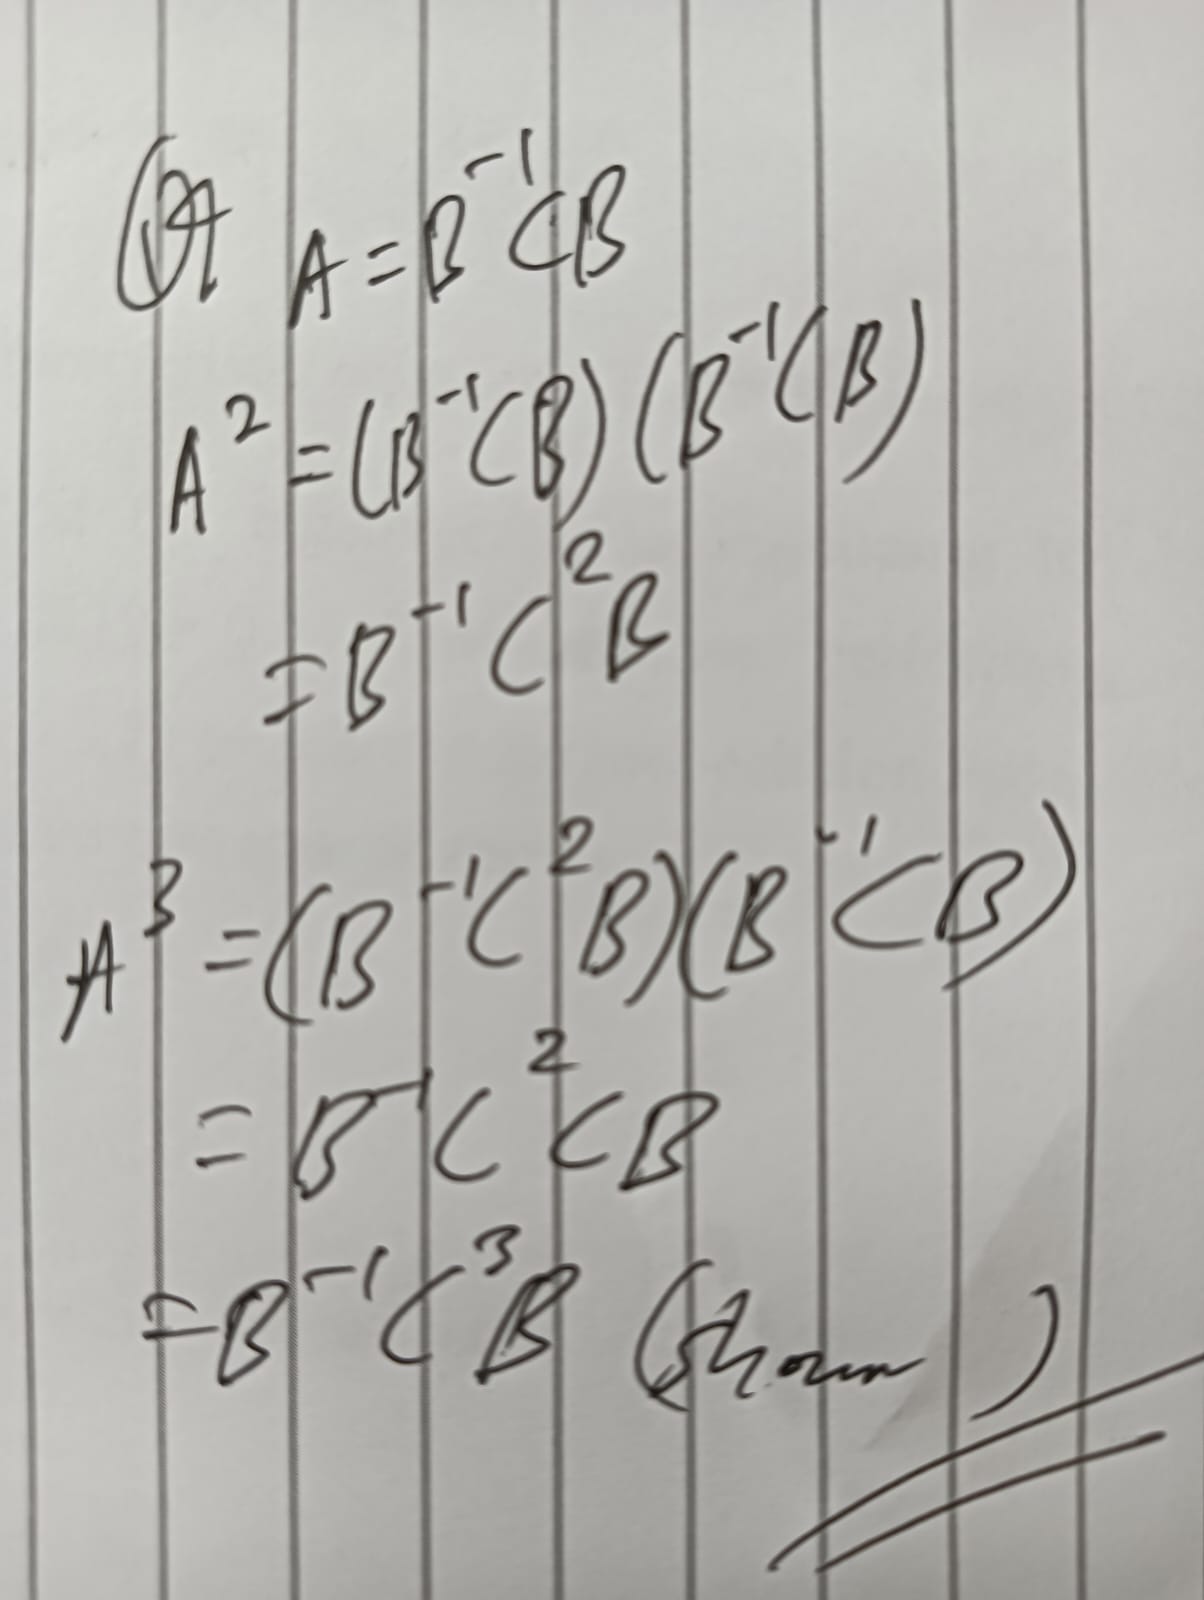 A = B⁻¹CB
A² = (B⁻¹CB)(B⁻¹CB)
= B⁻¹C²B
A³ = (B⁻¹C²B)(B⁻¹CB)
= B⁻¹C²CB
= B⁻¹C³B (Shown)